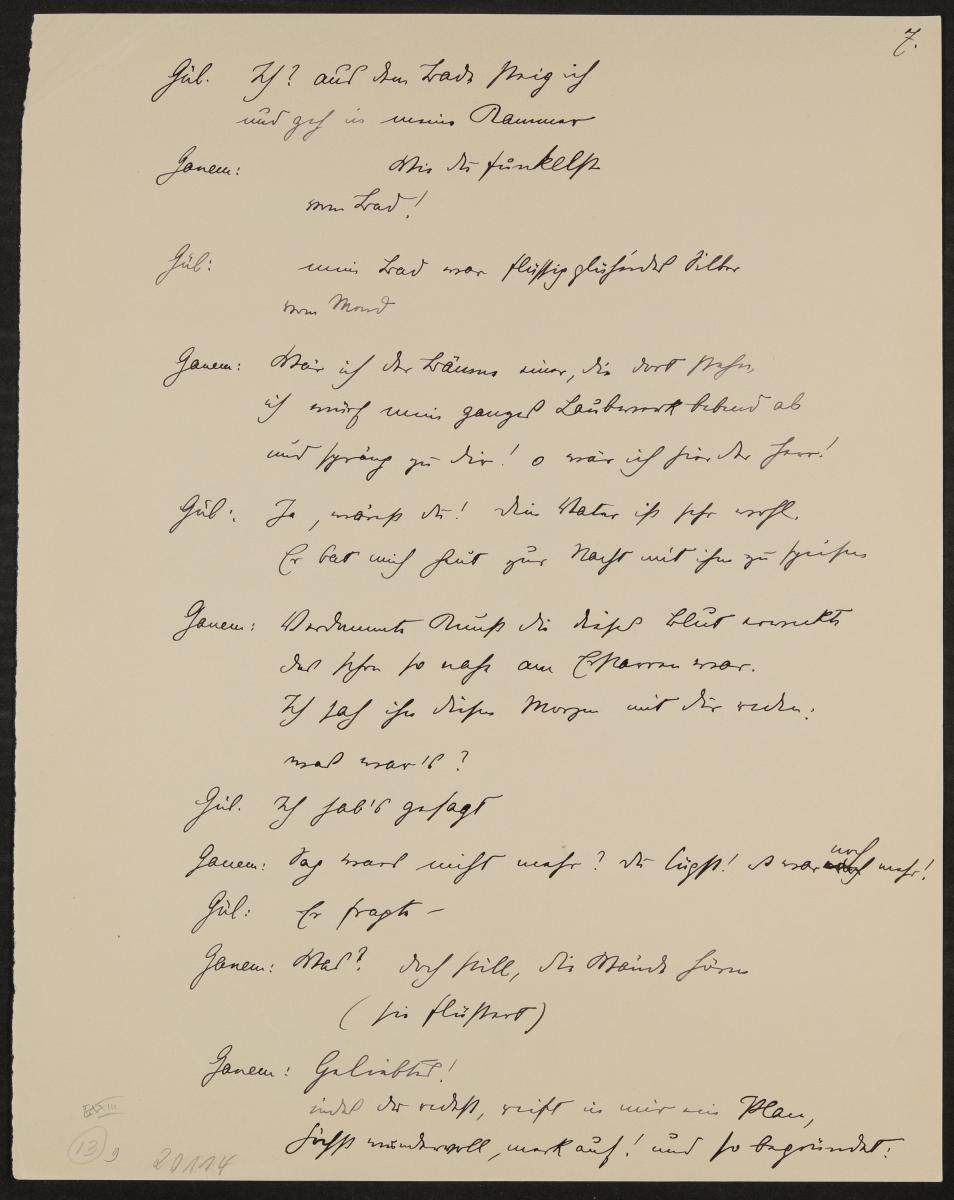 7.
Gül. Ich? aus dem Bade steig ich
und geh in meine Kammer
Ganem: Wie du funkelst
vom Bad!
Gül: mein Bad war flüssig glühendes Silber
vom Mond
Ganem: Wär ich der Bäume einer, die dort stehn,
ich würf mein ganzes Laubwerk bebend ab
und spräng zu dir! o wär ich hier der Herr!
Gül: Ja, wärest du! dein Vater ist sehr wohl.
Er bat mich heut zur Nacht mit ihm zu speisen
Ganem: Verdammte Kunst die dieses Blut erweckte
das schon so nah am Erstarren war.
Ich sah ihn diesen Morgen mit dir reden:
was war's?
Gül. Ich hab's gesagt
Ganem: Sag wars nicht mehr? du lügst! es war noch mehr!
Gül: Er fragte –
Ganem: Was? doch still, die Wände hören
(sie flüstert)
Ganem: Geliebtes!
indes du redest, reift in mir ein Plan,
höchst wundervoll, merk auf! und so begründet:
13 9
20114